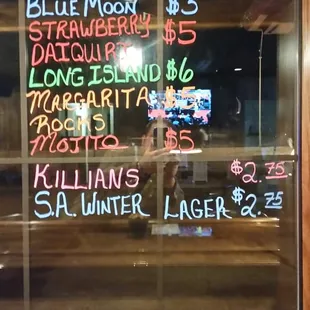 BLUE MOON $3
STRAWBERRY
DAIQUIRI $5
LONG ISLAND $6
MARGARITA $5
ROCKS
MOJITO $5
KILLIANS $2.75
S.A. WINTER LAGER $2.75